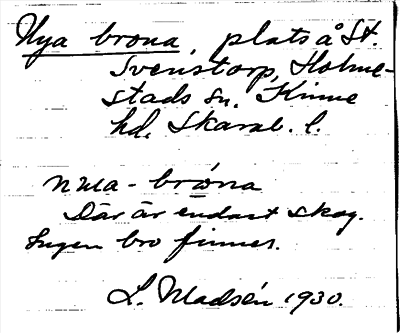 Nya brona, plats å St.
Svenstorp, Holme-
stads sn. Kinne
hd. Skarab. l.
nya-brona
Där är endast skog.
Ingen bro finnes.
L. Madsén 1930.